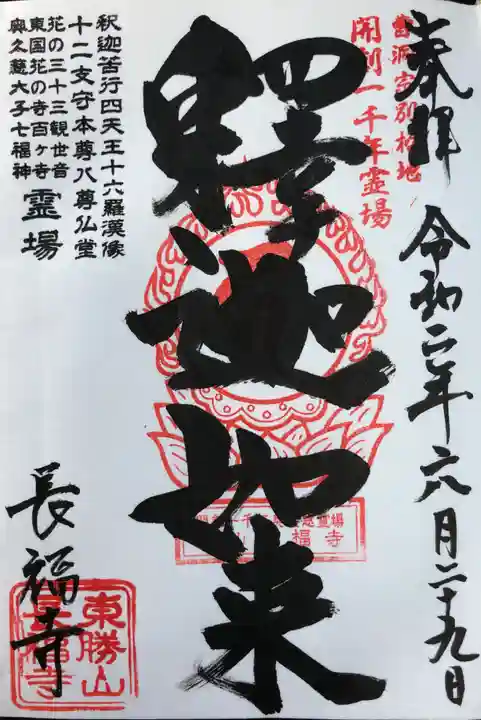 奉拝
令和二年六月二十九日
曹洞宗別格地
開創一千年霊場
釋迦如来
釈迦苦行四天王十六羅漢像
十二支守本尊八尊仏堂
花の三十三観世音
東国花の寺百ヶ寺
奥久慈大子七福神
霊場
長福寺
東勝山
長福寺